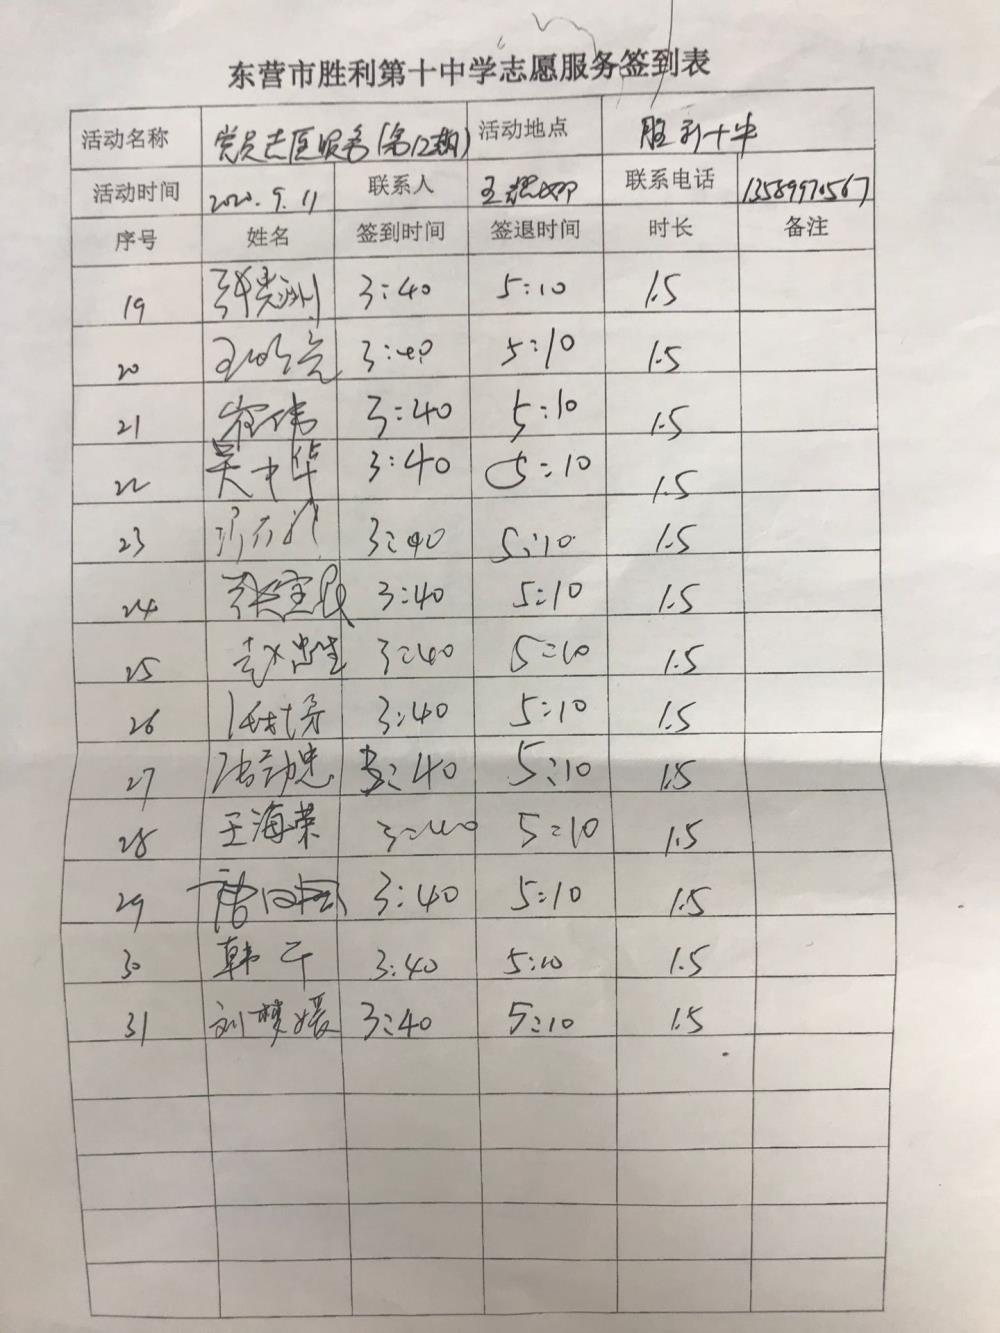 东营市胜利第十中学志愿服务签到表
活动名称 党员志愿服务(第12期) 活动地点 胜利十中
活动时间 2020.9.11 联系人 联系电话 13589970567
序号 姓名 签到时间 签退时间 时长 备注
19 3:40 5:10 1.5
20 3:40 5:10 1.5
21 崔伟 3:40 5:10 1.5
22 吴中华 3:40 5:10 1.5
23 3:40 5:10 1.5
24 3:40 5:10 1.5
25 赵忠生 3:40 5:10 1.5
26 3:40 5:10 1.5
27 3:40 5:10 1.5
28 王海荣 3:40 5:10 1.5
29 3:40 5:10 1.5
30 韩干 3:40 5:10 1.5
31 刘梦媛 3:40 5:10 1.5